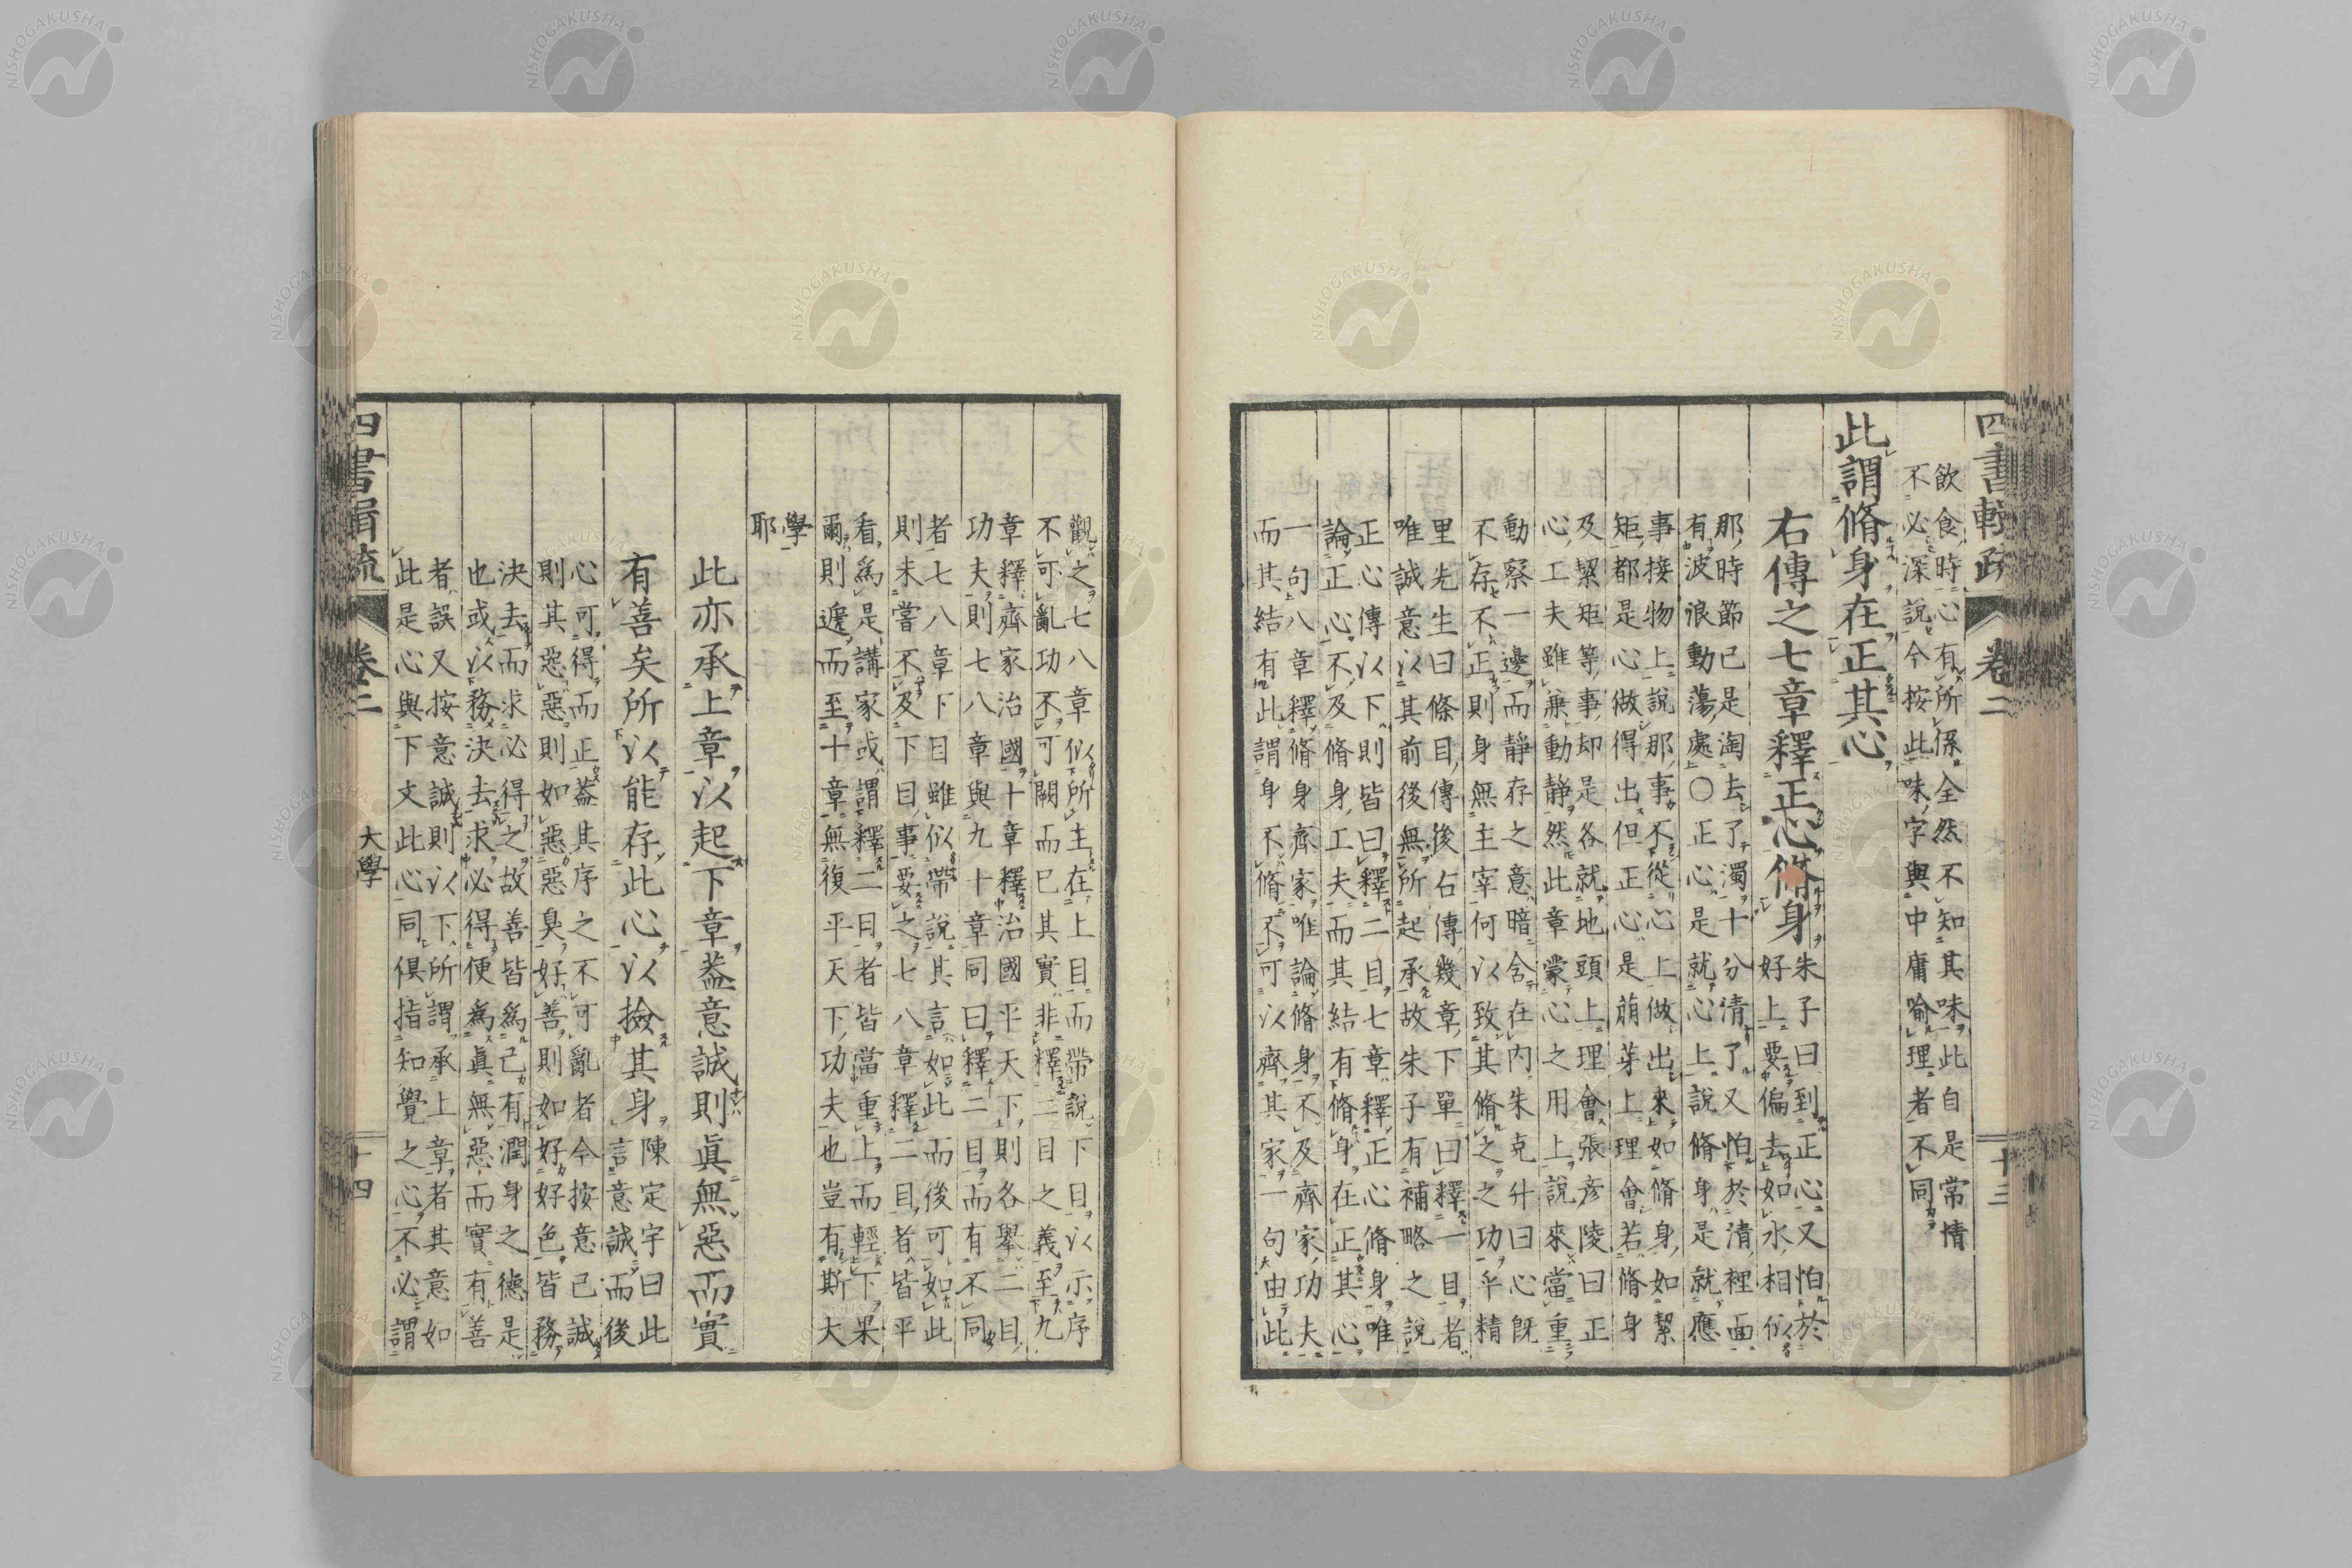 四書輯疏 卷二 十三
飲食時心有所係全然不知其味此自是常情
不必深說今按此味字與中庸喻理者不同
此謂脩身在正其心
右傳之七章釋正心脩身
朱子曰到正心又怕於
好上要偏去如水相似
那時節已是淘去了濁十分清了又怕於清裡面
有波浪動蕩處〇正心是就心上說脩身是就應
事接物上說那事不從心上做出來如脩身如絜
矩都是心做得出但正心是萌芽上理會若脩身
及絜矩等事却是各就地頭上理會張彥陵曰正
心工夫雖兼動静然此章蒙心之用上說來當重
動察一邊而静存之意暗含在内朱克升曰心旣
不存不正則身無主宰何以致其脩之之功乎精
里先生曰條目傳後右傳幾章下單曰釋一目者
唯誠意以其前後無所起承故朱子有補略之說
正心傳以下則皆曰釋二目七章釋正心脩身唯
論正心不及脩身工夫而其結有脩身在正其心
一句八章釋脩身齊家唯論脩身不及齊家功夫
而其結有此謂身不脩不可以齊其家一句由此
觀之七八章似所主在上目而帶說下目以示序
不可亂功不可闕而已其實非釋二目之義至九
章釋齊家治國十章釋治國平天下則各舉二目
功夫則七八章與九十章同曰釋二目而有不同
者七八章下目雖似帶說其言如此而後可如此
則未嘗不及下目事要之七八章釋二目者皆平
看爲是講家或謂釋二目者皆當重上而輕下果
爾則遞而至十章無復平天下功夫也豈有斯大
學
耶
此亦承上章以起下章蓋意誠則眞無惡而實
有善矣所以能存此心以撿其身
陳定宇曰此
言意誠而後
心可得而正蓋其序之不可亂者今按意已誠
則其惡惡則如惡惡臭好善則如好好色皆務
決去而求必得之故善皆爲己有潤身之德是
也或以務決去求必得便爲眞無惡而實有善
者誤又按意誠則以下所謂承上章者其意如
此是心與下文此心同俱指知覺之心不必謂
四書輯疏 卷二 大學 十四